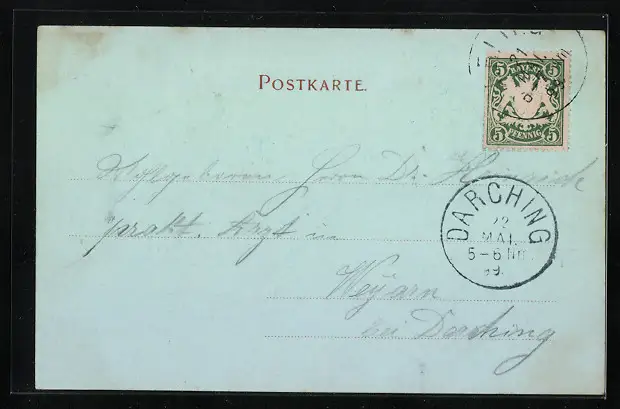 POSTKARTE.
5 BAYERN 5
5 PFENNIG 5
Herrn Dr. Heinrich
prakt. Arzt in
Weyarn
bei Darching
DARCHING
22
MAI.
5-6 Nm.
99.